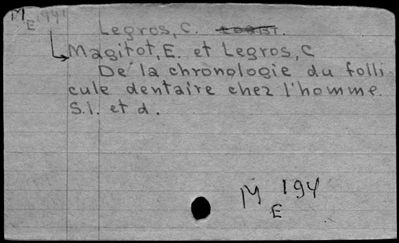 M 194
E
Legros, C.
Magitot, E. et Legros, C
De la chronologie du folli
cule dentaire chez l'homme.
S.l. et d.
M 194
E